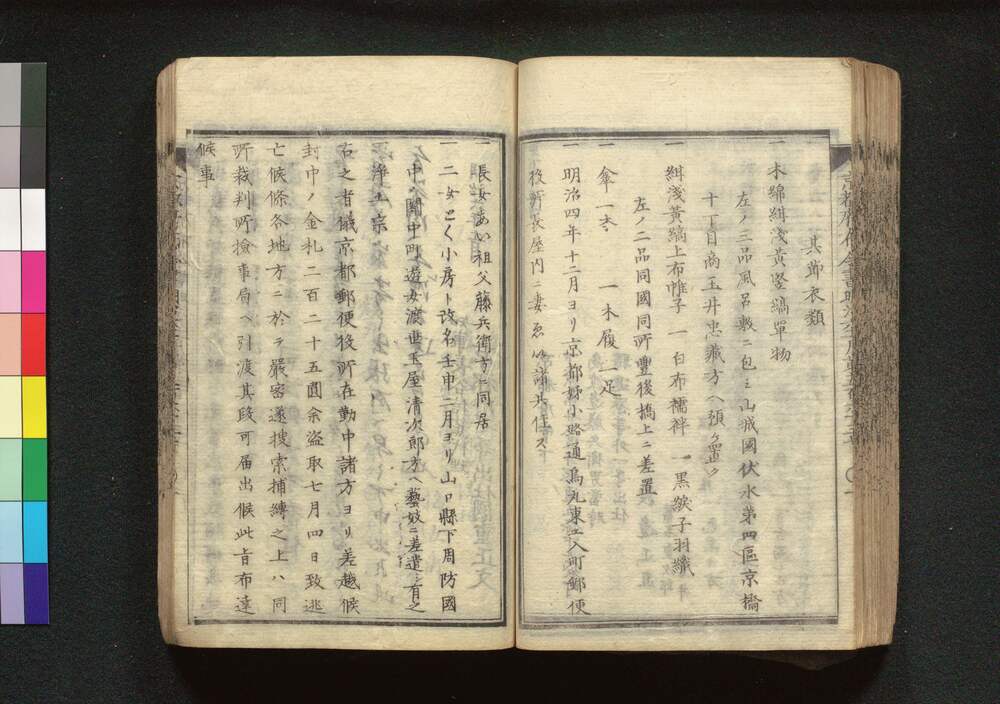 其節衣類
一 木綿紺浅黄竪縞單物
左ノ三品風呂敷ニ包ミ山城國伏水第四區京橋
十丁目商玉井忠藏方ヘ預ケ置ク
一 紺浅黄縞上布帷子 一 白布襦袢 一 黒緞子羽織
左ノ二品同國同所豊後橋上ニ差置
一 傘一本 一 木履一足
一 明治四年十二月ヨリ京都錦小路通烏丸東エ入町郵便
役所長屋内ニ妻ゑい諸共住ス
一 長女あい祖父藤兵衛方ニ同居
一 二女とく小房ト改名壬申二月ヨリ山口縣下周防國
中ノ関中町遊女渡世玉屋清次郎方ヘ藝妓ニ差遣シ有之
一 浄土宗
右之者儀京都郵便役所在勤中諸方ヨリ差越候
封中ノ金札二百二十五圓余盗取七月四日致逃
亡候條各地方ニ於テ嚴密遂搜索捕縛之上ハ同
所裁判所撿事局ヘ引渡其段可届出候此旨布達
候事